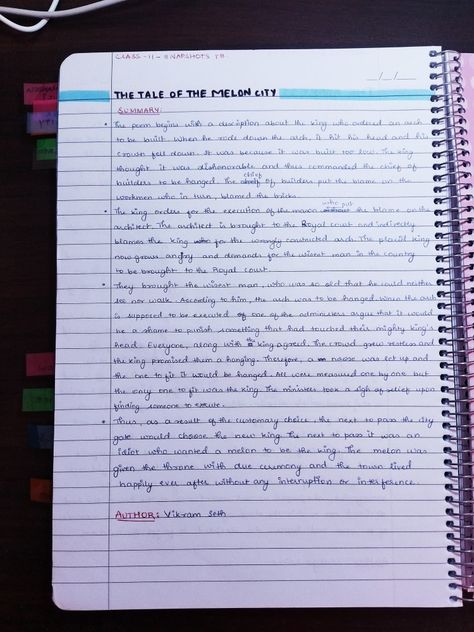 CLASS-11 - SNAPSHOTS TB
__/__/__
THE TALE OF THE MELON CITY
SUMMARY:
• The poem begins with a description about the king who ordered an arch
to be built. When he rode down the arch, it hit his head and his
crown fell down. It was because it was built too low. The king
thought it was dishonorable and thus commanded the chief of
builders to be hanged. The chief of builders put the blame on the
workmen who in turn, blamed the bricks.
• The king orders for the execution of the mason who put the blame on the
architect. The architect is brought to the Royal court and indirectly
blames the king for the wrongly contructed arch. The placid king
now grows angry and demands for the wisest man in the country
to be brought to the Royal court.
• They brought the wisest man, who was so old that he could neither
see nor walk. According to him, the arch was to be hanged. When the arch
is supposed to be executed one of the administers argue that it would
be a shame to punish something that had touched their mighty king's
head. Everyone, along with the king agreed. The crowd grew restless and
the king promised them a hanging. Therefore, a noose was set up and
the one to fit it would be hanged. All were measured one by one but
the only one to fit was the king. The ministers took a sigh of relief upon
finding someone to execute.
• Thus, as a result of the customary choice, the next to pass the city
gate would choose the new king. The next to pass it was an
idiot who wanted a melon to be the king. The melon was
given the throne with due ceremony and the town lived
happily ever after without any interruption or interference.
AUTHOR: Vikram Seth